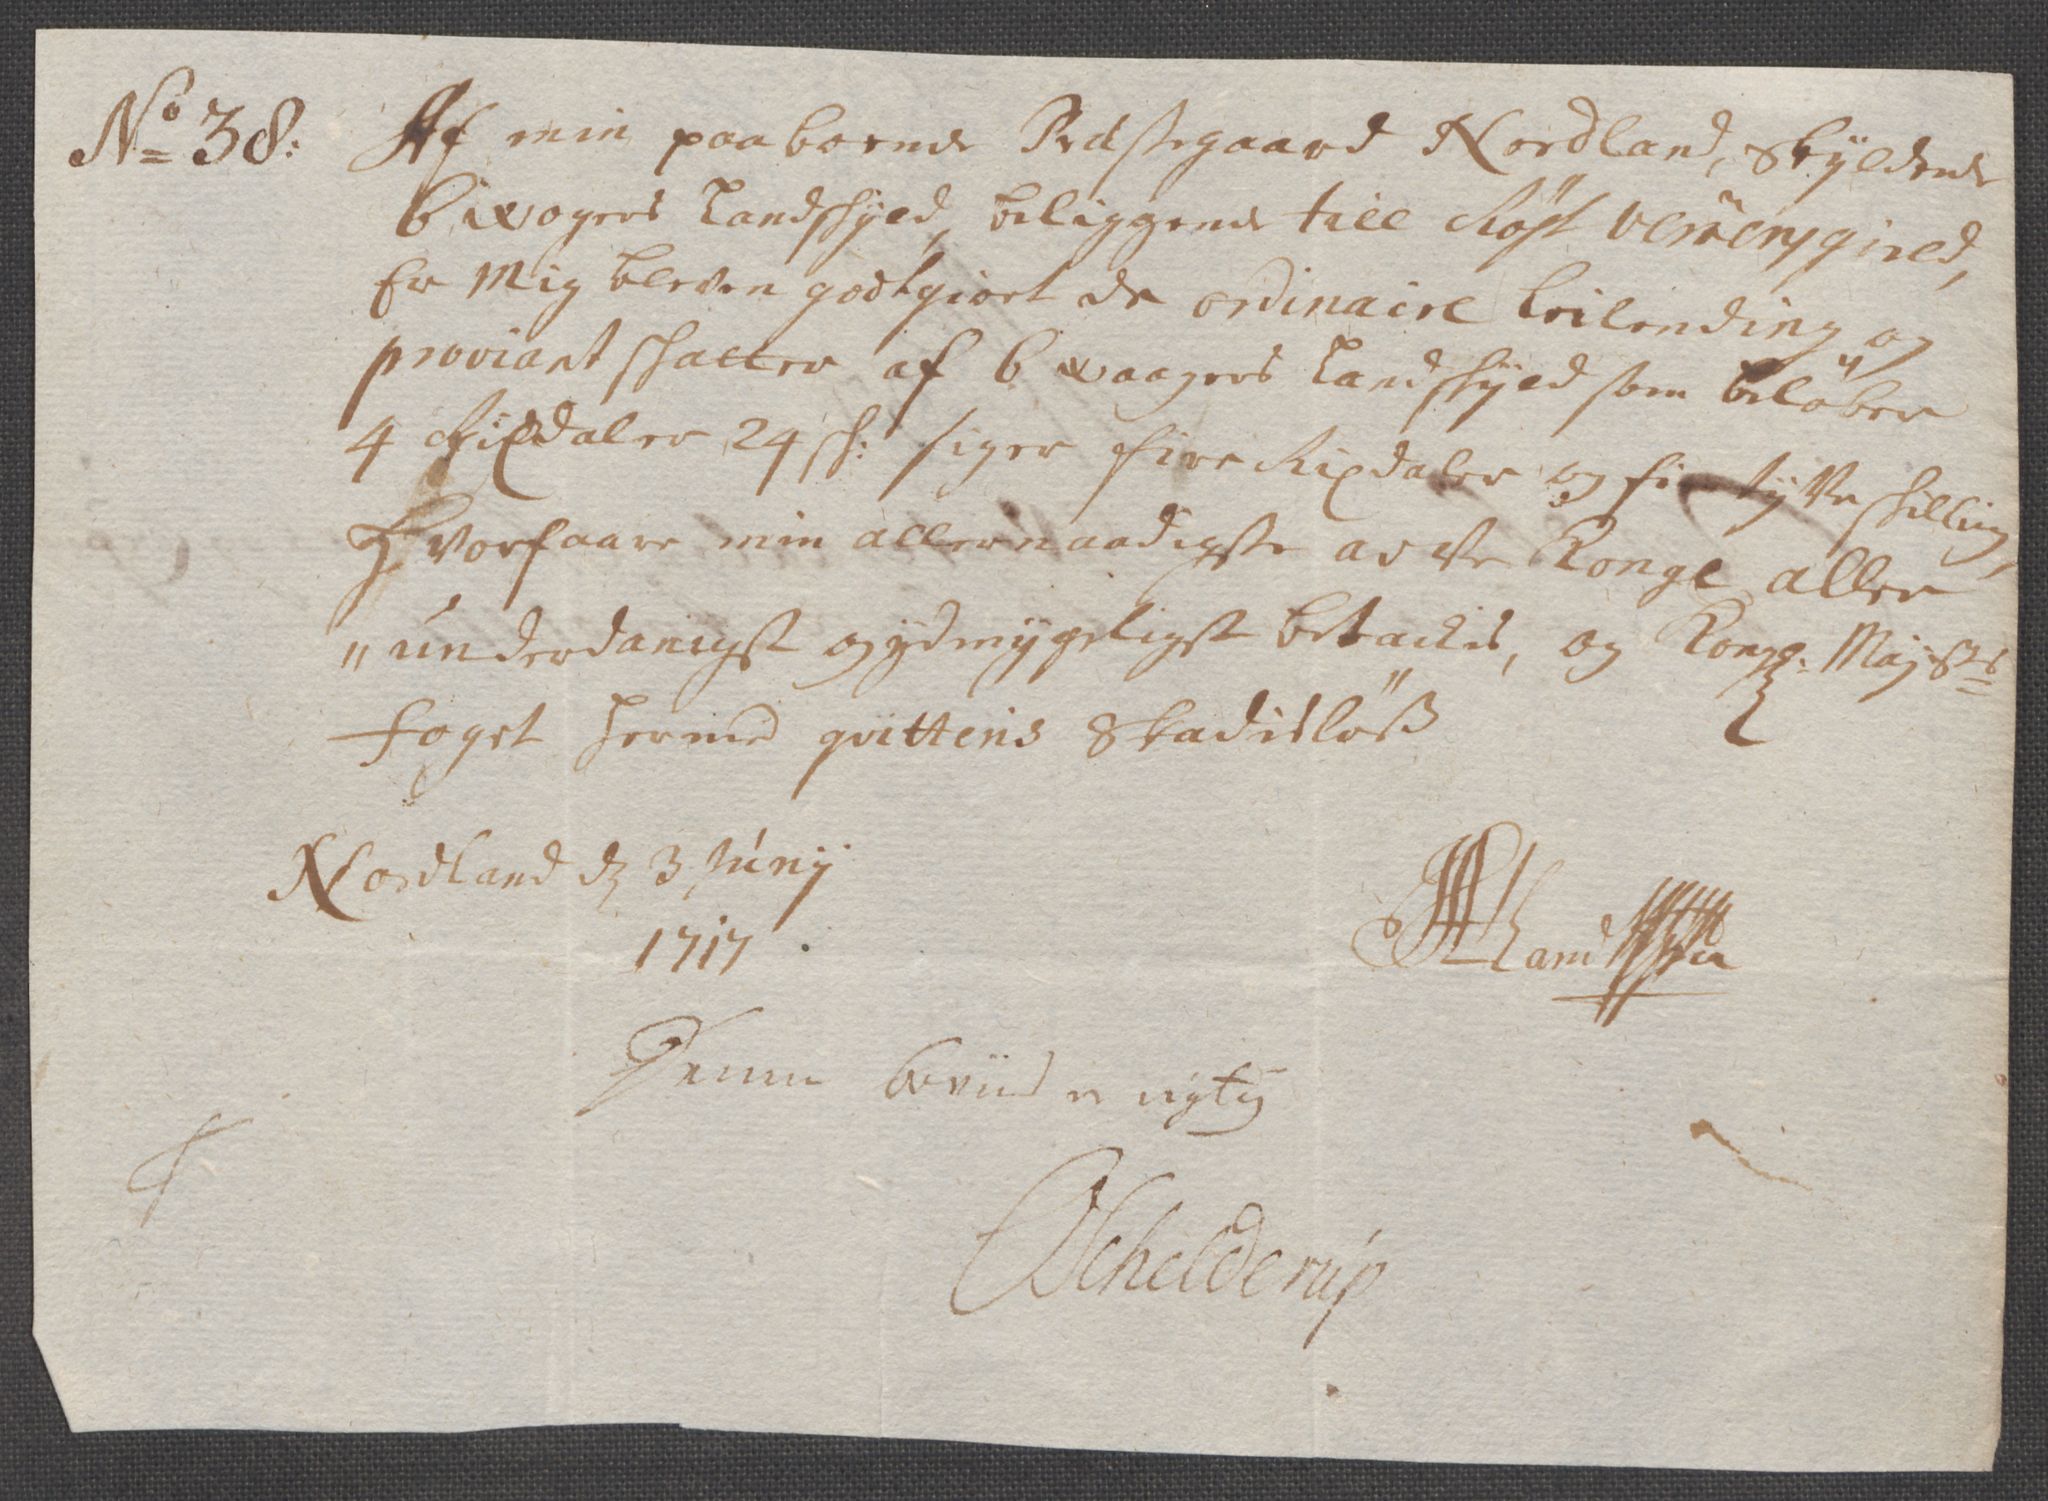 No 38: Af min paaboende Prestegaard Nordland, skyldende
6 wogers Landskyld, beliggende till Röst
er mig bleven godtgiort de ordinaire leilending og
proviant skatter af 6 waagers Landskyld som belöber
4 Rixdaler 24 sh: siger fire Rixdaler og fire tÿve skilling,
Hvorfaare min allernaadigste arve Konge aller
"underdanigst og ydmygeligst betackis, og Kong: Maj:sts
foget hermed qvitteris skadislöß
Nordland d. 3 Junÿ
1717
Denne er rigtig
Schelderup